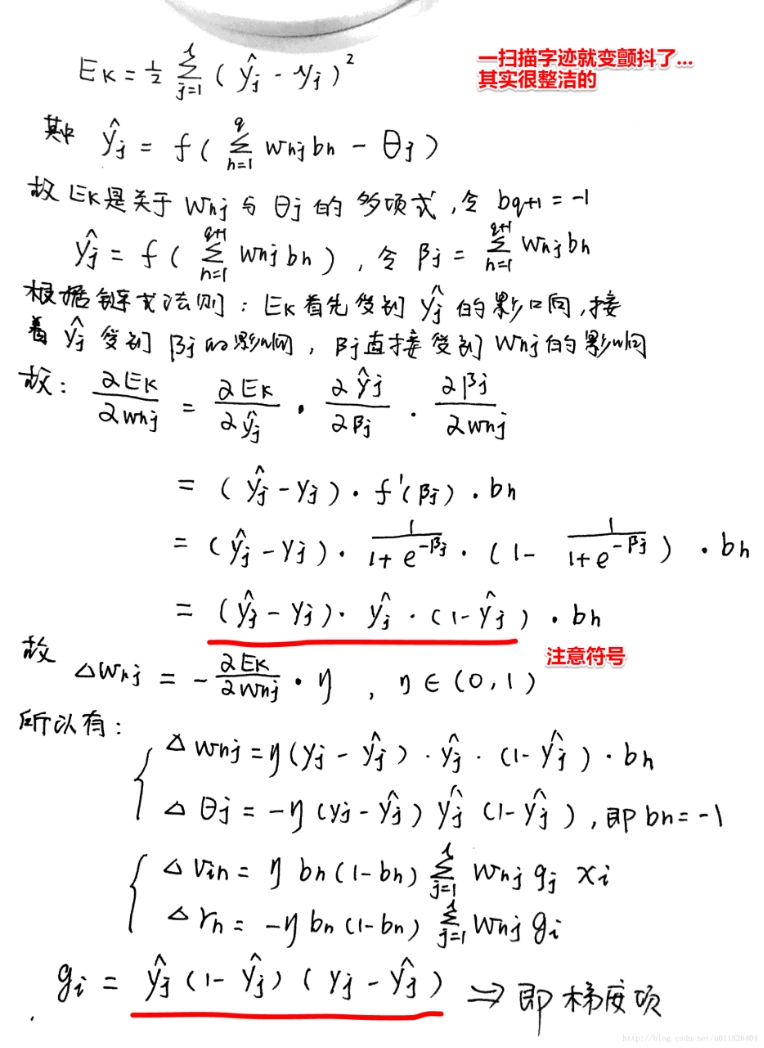 E_K = 1/2 Σ_{j=1}^{l} (ŷ_j - y_j)²
一扫描字迹就变颤抖了...
其实很整洁的
其中 ŷ_j = f( Σ_{h=1}^{q} w_hj b_h - θ_j )
故 E_K是关于 w_hj 与 θ_j 的多项式,令 b_{q+1} = -1
ŷ_j = f( Σ_{h=1}^{q+1} w_hj b_h ) , 令 β_j = Σ_{h=1}^{q+1} w_hj b_h
根据链式法则:E_K首先受到 ŷ_j 的影响,接
着 ŷ_j 受到 β_j 的影响, β_j直接受到 w_hj的影响
故: ∂E_K/∂w_hj = ∂E_K/∂ŷ_j · ∂ŷ_j/∂β_j · ∂β_j/∂w_hj
= (ŷ_j - y_j) · f'(β_j) · b_h
= (ŷ_j - y_j) · 1/(1+e^{-β_j}) · (1 - 1/(1+e^{-β_j})) · b_h
= (ŷ_j - y_j) · ŷ_j · (1-ŷ_j) · b_h
注意符号
故 △w_hj = - ∂E_K/∂w_hj · η , η ∈ (0,1)
所以有:
△w_hj = η(y_j - ŷ_j) · ŷ_j · (1-ŷ_j) · b_h
△θ_j = -η (y_j - ŷ_j) ŷ_j (1-ŷ_j) , 即 b_h = -1
△v_ih = η b_h (1-b_h) Σ_{j=1}^{l} w_hj g_j x_i
△r_h = -η b_h (1-b_h) Σ_{j=1}^{l} w_hj g_i
g_i = ŷ_j (1-ŷ_j) (y_j - ŷ_j) ⇒ 即梯度项
http://blog.csdn.net/u011828404